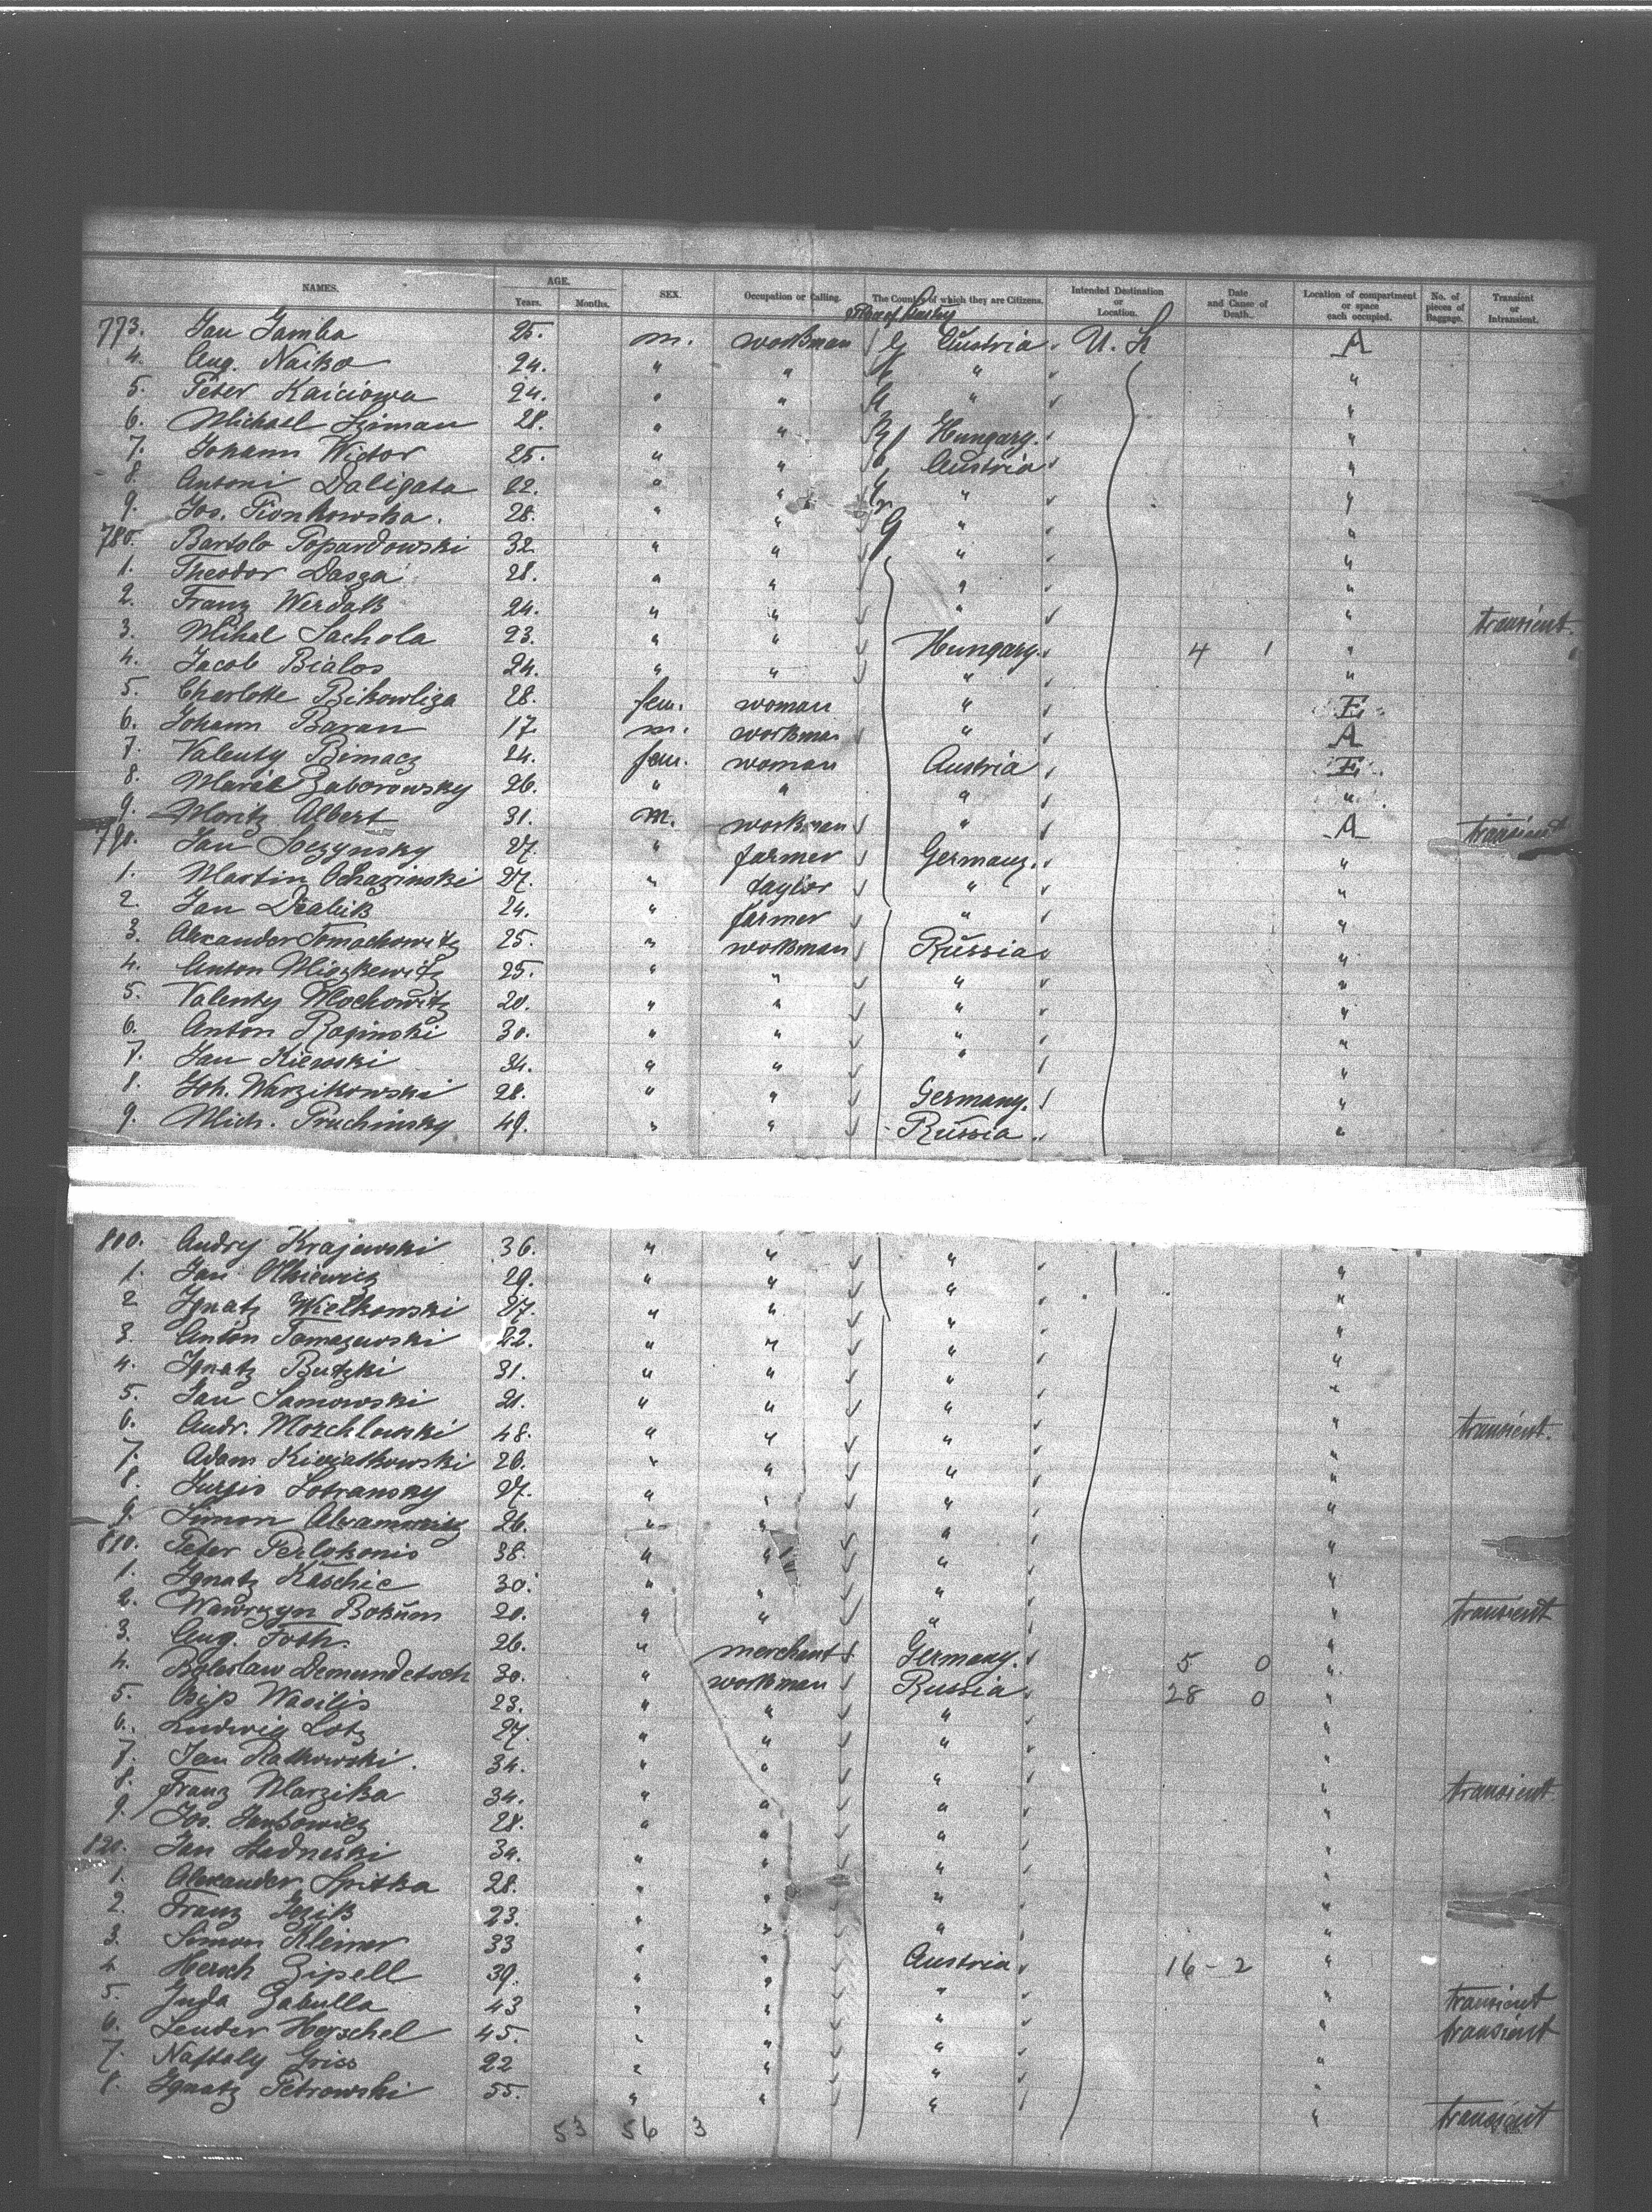 NAMES. AGE. Years. Months. SEX. Occupation or Calling. The Country of which they are Citizens. Intended Destination or Location. Date and Cause of Death. Location of compartment or space each occupied. No. of pieces of Baggage. Transient or Intransient.
773. Jan Gamba 25. m. workman Austria U. S. A
4. Aug. Naiko 24. " " " "
5. Peter Kaiciowa 24. " " " "
6. Michael Sziman 28. " " Hungary. "
7. Johann Wictor 25. " " Austria "
8. Antoni Daligata 22. " " " "
9. Jos. Pionkowska. 28. " " G " "
780. Bartolo Popardowski 32 " " " "
1. Theodor Dasza 28. " " " "
2. Franz Werdak 24. " " " " transient.
3. Mihal Sachola 23. " " Hungary. 4 1 "
4. Jacob Bialos 24. " " " "
5. Charlotte Bikowliza 28. fem. woman " E
6. Johann Baran 17 m. workman " A
7. Valenty Bimacz 24. fem. woman Austria E
8. Marie Zaborowsky 26. " " " "
9. Moritz Albert 31. m. workman " A transient
790. Jan Soczynsky 27. " farmer Germany. "
1. Martin Ocharinski 27. " taylor " "
2. Jan Dealik 24. " farmer " "
3. Alexander Tomachowitz 25. " workman Russia "
4. Anton Miszkewitz 25. " " " "
5. Valenty Wlochowitz 20. " " " "
6. Anton Roginski 30. " " " "
7. Jan Kiewski 34. " " " "
8. Joh. Warzikowski 28. " " Germany. "
9. Mich. Pruchinsky 49. " " Russia "
800. Andry Krajewski 36. " " " "
1. Jan Olkiewicz 29. " " " "
2 Ignatz Wielkowski 27. " " " "
3. Anton Tomazewski 22. " " " "
4. Ignatz Butzki 31. " " " "
5. Jan Samowski 21. " " " "
6. Andr. Mozchlowski 48. " " " " transient.
7. Adam Kiviatkowski 26. " " " "
8. Jurgis Lotransky 27. " " " "
9. Simon Abramowitz 26. " " " "
810. Peter Perlokonis 38. " " " "
1. Ignatz Kaschic 30. " " " "
2. Wawrzyn Bokum 20. " " " " transient
3. Aug. Foth. 26. " merchant Germany. 5 0 "
4. Boleslaw Demundetsch 30. " workman Russia 28 0 "
5. Osip Wasilis 23. " " " "
6. Ludwig Lotz 27. " " " "
7. Jan Ratkowski. 34. " " " "
8. Franz Marzika 34. " " " " transient
9. Jos. Jankowicz 28. " " " "
820. Jan Stadneski 34. " " " "
1. Alexander Spitka 28. " " " "
2. Franz Jozik 23. " " " "
3. Simon Kleiner 33 " " Austria 16 - 2 "
4 Hersch Zipell 39. " " " "
5. Juda Gabulla 43 " " " " transient
6. Lender Herschel 45. " " " " transient
7. Naftaly Griss 22 " " " "
8. Ignatz Petrowski 55. " " " " transient
53 56 3